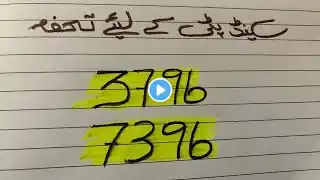 سکینڈ پٹی کے لیئے تحفہ
3796
7396